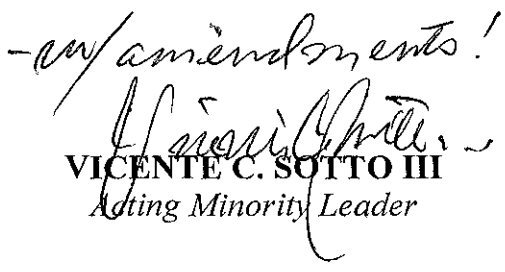 -w/ amendments!
VICENTE C. SOTTO III
Acting Minority Leader